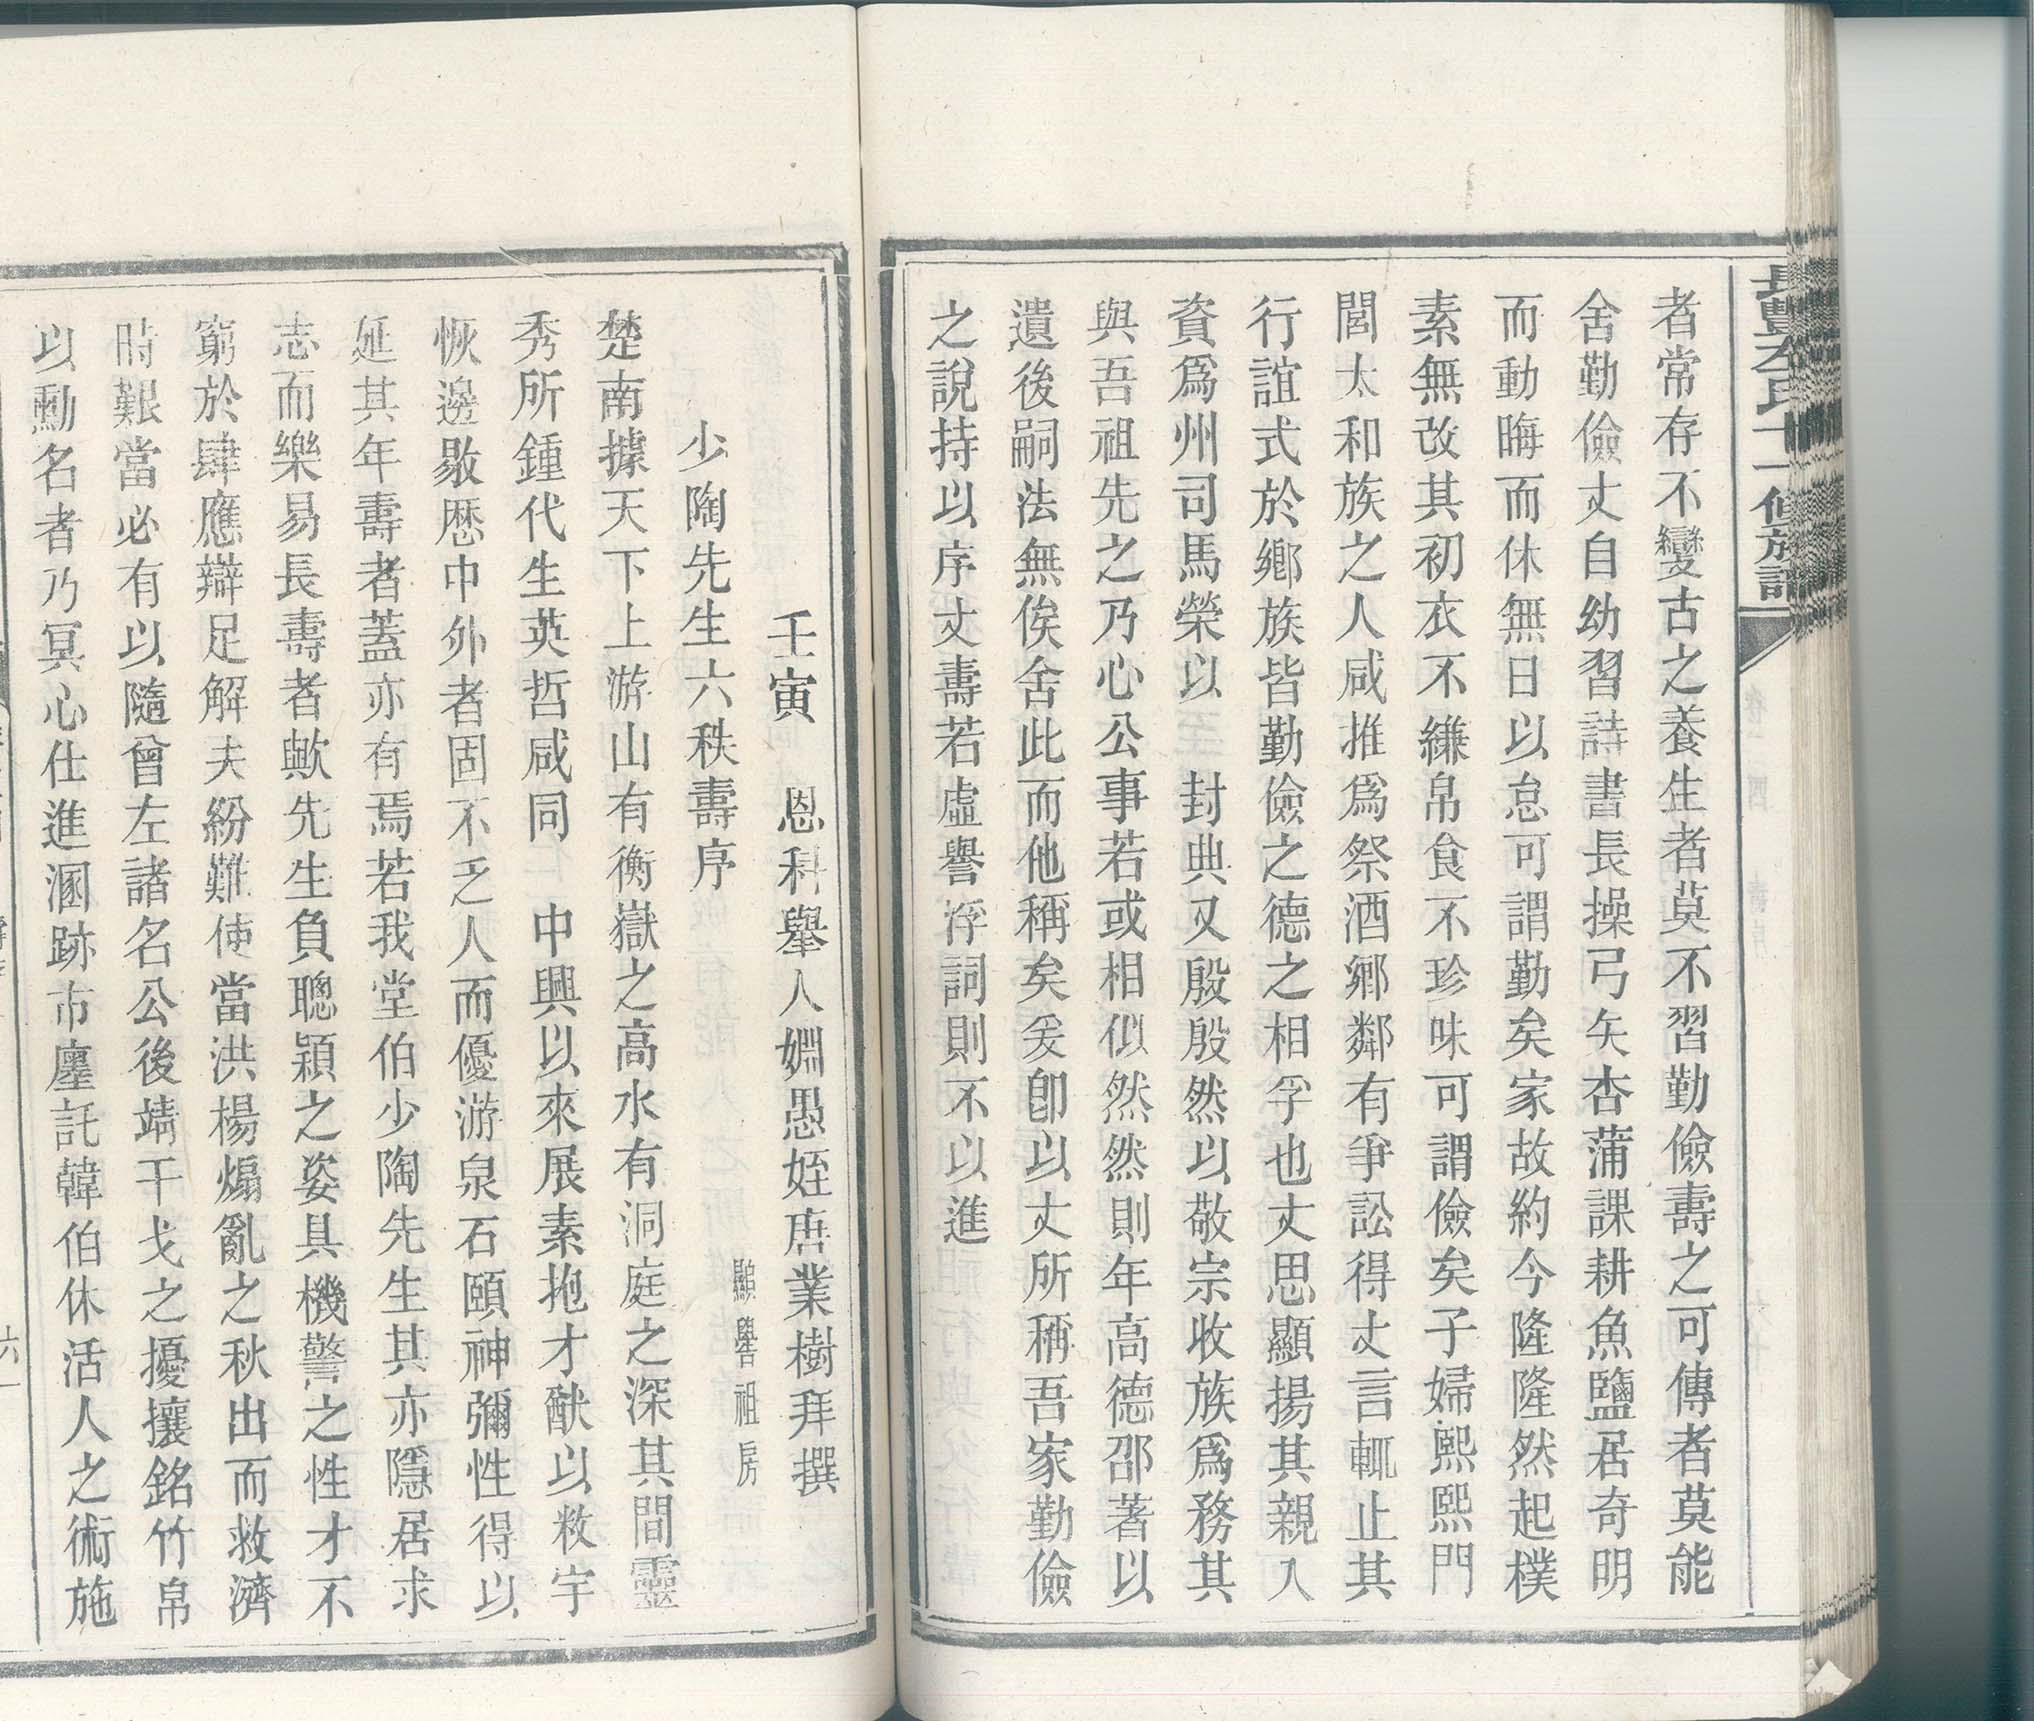 長豐左氏十一修族譜
者常存不變古之養生者莫不習勤儉壽之可傳者莫能
舍勤儉丈自幼習詩書長操弓矢杏蒲課耕魚鹽居奇明
而動晦而休無日以怠可謂勤矣家故約今隆隆然起樸
素無改其初衣不縑帛食不珍味可謂儉矣子婦熙熙門
閭太和族之人咸推爲祭酒鄉鄰有爭訟得丈言輒止其
行誼式於鄉族皆勤儉之德之相孚也丈思顯揚其親入
資爲州司馬榮以 封典又殷殷然以敬宗收族爲務其
與吾祖先之乃心公事若或相似然然則年高德邵著以
遺後嗣法無俟舍此而他稱矣爰卽以丈所稱吾家勤儉
之說持以序丈壽若虛譽浮詞則不以進
壬寅 恩科舉人婣愚姪唐業樹拜撰
少陶先生六秩壽序 顯譽祖房
楚南據天下上游山有衡嶽之高水有洞庭之深其間靈
秀所鍾代生英哲咸同 中興以來展素抱才猷以敉宇
恢邊敭歷中外者固不乏人而優游泉石頤神彌性得以
延其年壽者蓋亦有焉若我堂伯少陶先生其亦隱居求
志而樂易長壽者歟先生負聰穎之姿具機警之性才不
窮於肆應辯足解夫紛難使當洪楊煽亂之秋出而救濟
時艱當必有以隨曾左諸名公後靖干戈之擾攘銘竹帛
以勳名者乃冥心仕進溷跡市廛託韓伯休活人之術施
六一